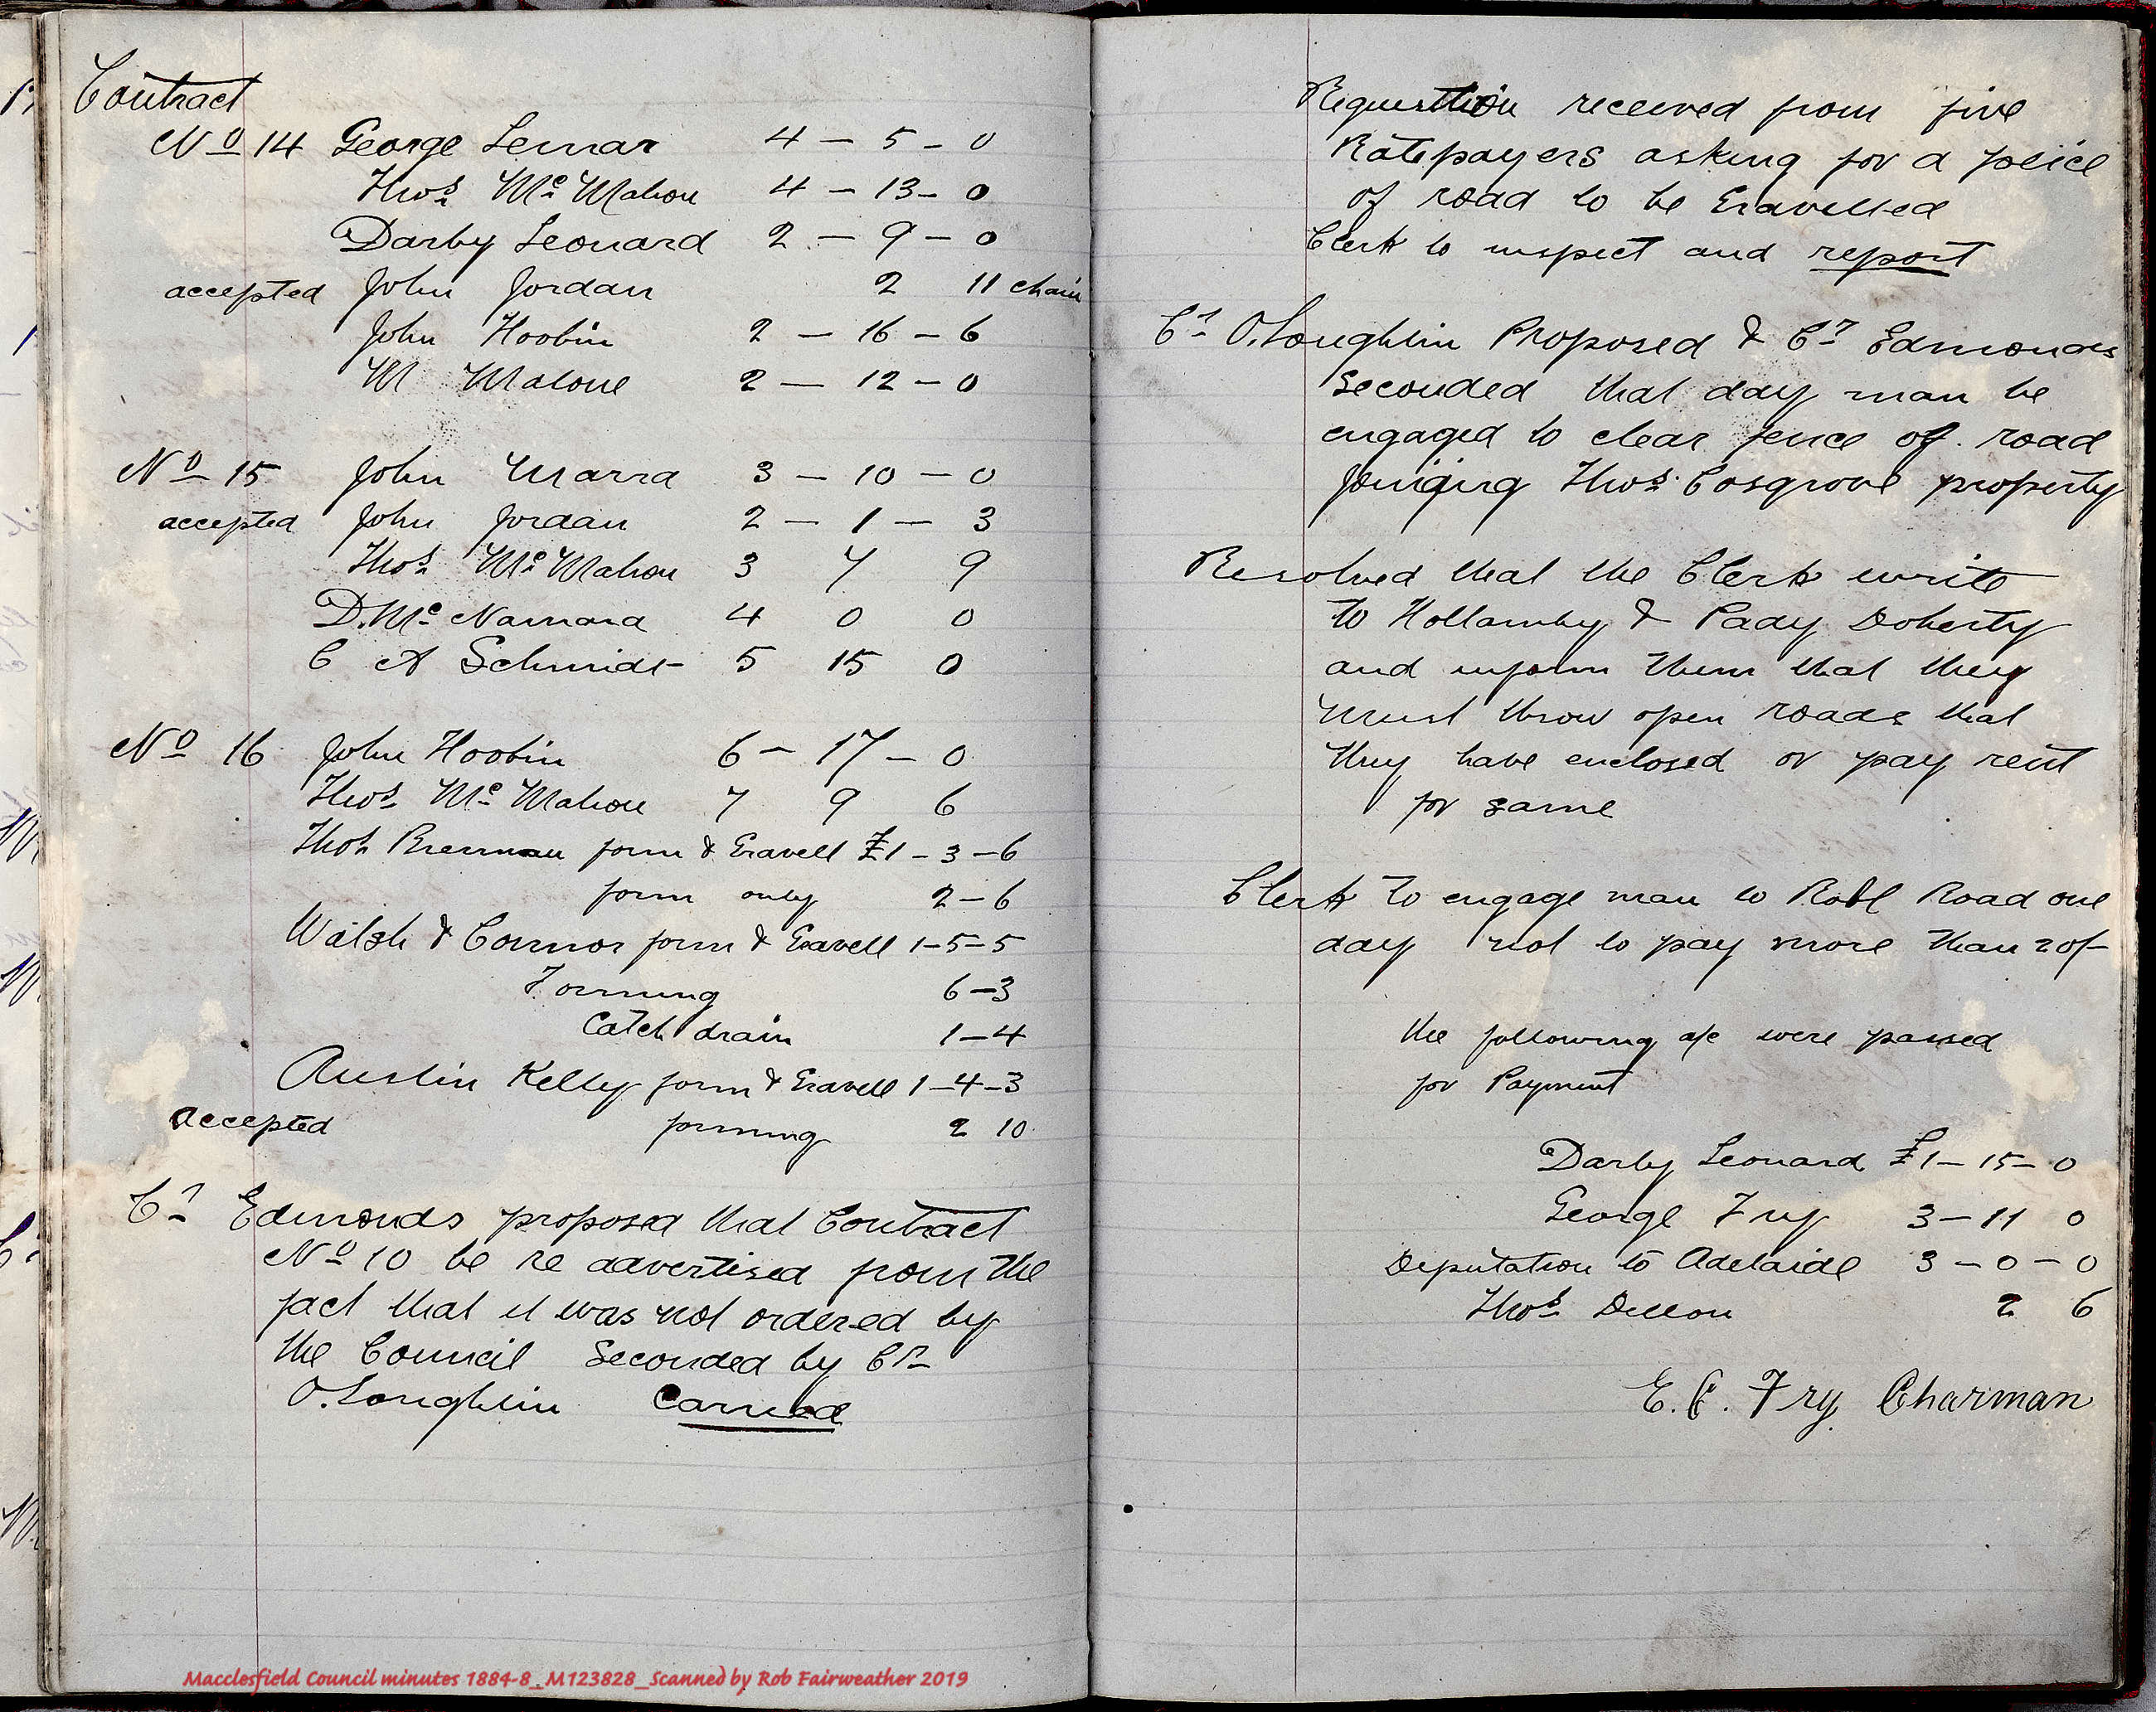 Contract
No 14 George Lemar 4 – 5 – 0
Thos McMahon 4 – 13 – 0
Darby Leonard 2 – 9 – 0
accepted John Jordan 2 11 chain
John Hoobin 2 – 16 – 6
M Malone 2 – 12 – 0
No 15 John Marra 3 – 10 – 0
accepted John Jordan 2 – 1 – 3
Thos McMahon 3 7 9
D. McNamara 4 0 0
C A Schmidt 5 15 0
No 16 John Hoobin 6 – 17 – 0
Thos McMahon 7 9 6
Thos Brennan form & Gravell £1 – 3 – 6
form only 2 – 6
Walsh & Connor form & Gravell 1 – 5 – 5
Forming 6 – 3
Catch drain 1 – 4
Austin Kelly form & Gravell 1 – 4 – 3
accepted forming 2 10
Cr Edmonds proposed that Contract
No 10 be re advertised from the
fact that it was not ordered by
the Council Seconded by Cr
O.Loughlin Carried
Requestion received from five
Ratepayers asking for a peice
of road to be Gravelled
Clerk to inspect and report
Cr O.Loughlin Proposed & Cr Edmonds
Seconded that day man be
engaged to clear fence of road
joinging Thos Cosgrove property
Resolved that the Clerk write
to Hollamby & Pady Doherty
and inform them that they
must throw open roads that
they have enclosed or pay rent
for same
Clerk to engage man to Roll Road one
day not to pay more than 20/-
the following a/c were passed
for Payment
Darby Leonard £1 – 15 – 0
George Fry 3 – 11 0
Deputation to Adelaide 3 – 0 – 0
Thos Dillon 2 6
E. C. Fry Charman
Macclesfield Council minutes 1884-8_M123828_Scanned by Rob Fairweather 2019